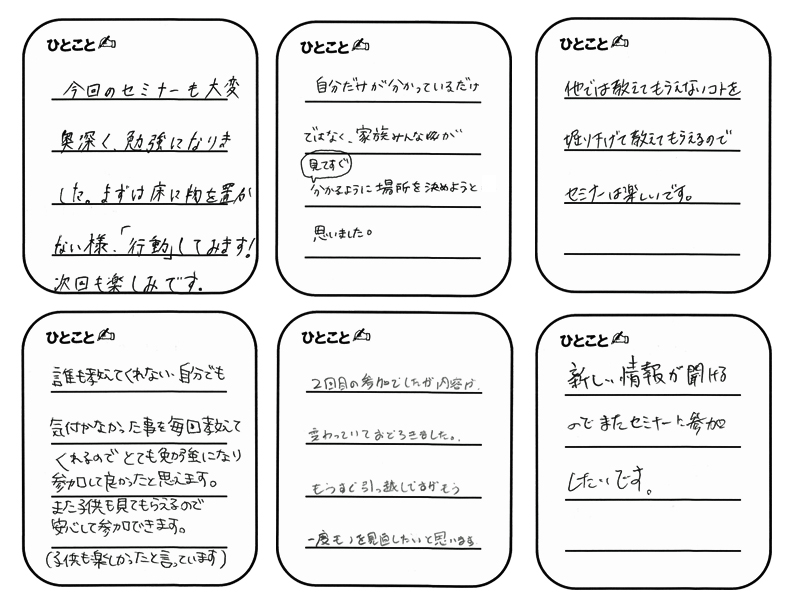 ひとこと
今回のセミナーも大変
奥深く、勉強になりま
した。まずは床に物を置か
ない様、「行動」してみます!
次回も楽しみです.
ひとこと
自分だけが分かっているだけ
ではなく、家族みんなが
見てすぐ
分かるように場所を決めようと
思いました。
ひとこと
他では教えてもらえないコトを
堀り下げて教えてもらえるので
セミナーは楽しいです。
ひとこと
誰も教えてくれない、自分でも
気付かなかった事を毎回教えて
くれるのでとても勉強になり
参加して良かったと思えます。
また子供も見てもらえるので
安心して参加できます。
(子供も楽しかったと言っています)
ひとこと
2回目の参加でしたが内容は、
変わっていておどろきました。
もうすぐ引っ越しですがもう
一度モノを見直したいと思います
ひとこと
新しい情報が聞ける
のでまたセミナーに参加
したいです。